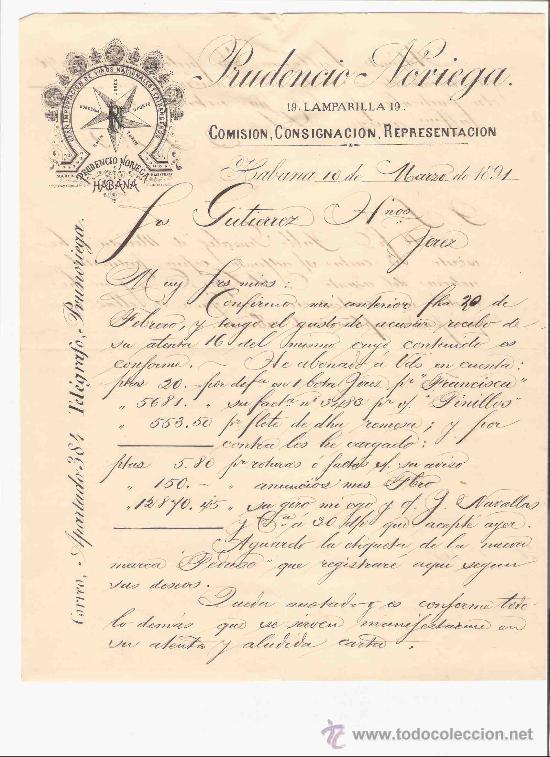 Prudencio Noriega.
19. LAMPARILLA 19.
COMISION, CONSIGNACION, REPRESENTACION
PRUDENCIO NORIEGA
HABANA
Habana 10 de Marzo de 1891
Srs Gutierrez Hnos
Jerez
Muy Srs mios:
Confirmo mi anterior fha 20 de
Febrero, y tengo el gusto de acusar recibo de
su atenta 16 del mismo cuyo contenido es
conforme. — He abonado á Uds en cuenta:
ptas 20. por difa en 1 bota Jerez pr "Francisca"
" 5681. " su facta nº 3483 pr vf "Pinillos"
" 553.50 pr flete de dha remesa; y por
contra les he cargado:
ptas 5.80 pr roturas ó faltas sf. su aviso
" 150. — " anuncios mes Fbro
" 12870.45 " su giro m/cgo y of J. Navallas
y Ca á 20 d/v que acepté ayer.
Aguardo la etiqueta de la nueva
marca que registraré aqui segun
sus deseos.
Queda anotado y es conforme todo
lo demás que se sirven manifestarme en
su atenta y aludida carta.
Correo, Apartado 384 Telégrafo, Prunoriega.
www.todocoleccion.net